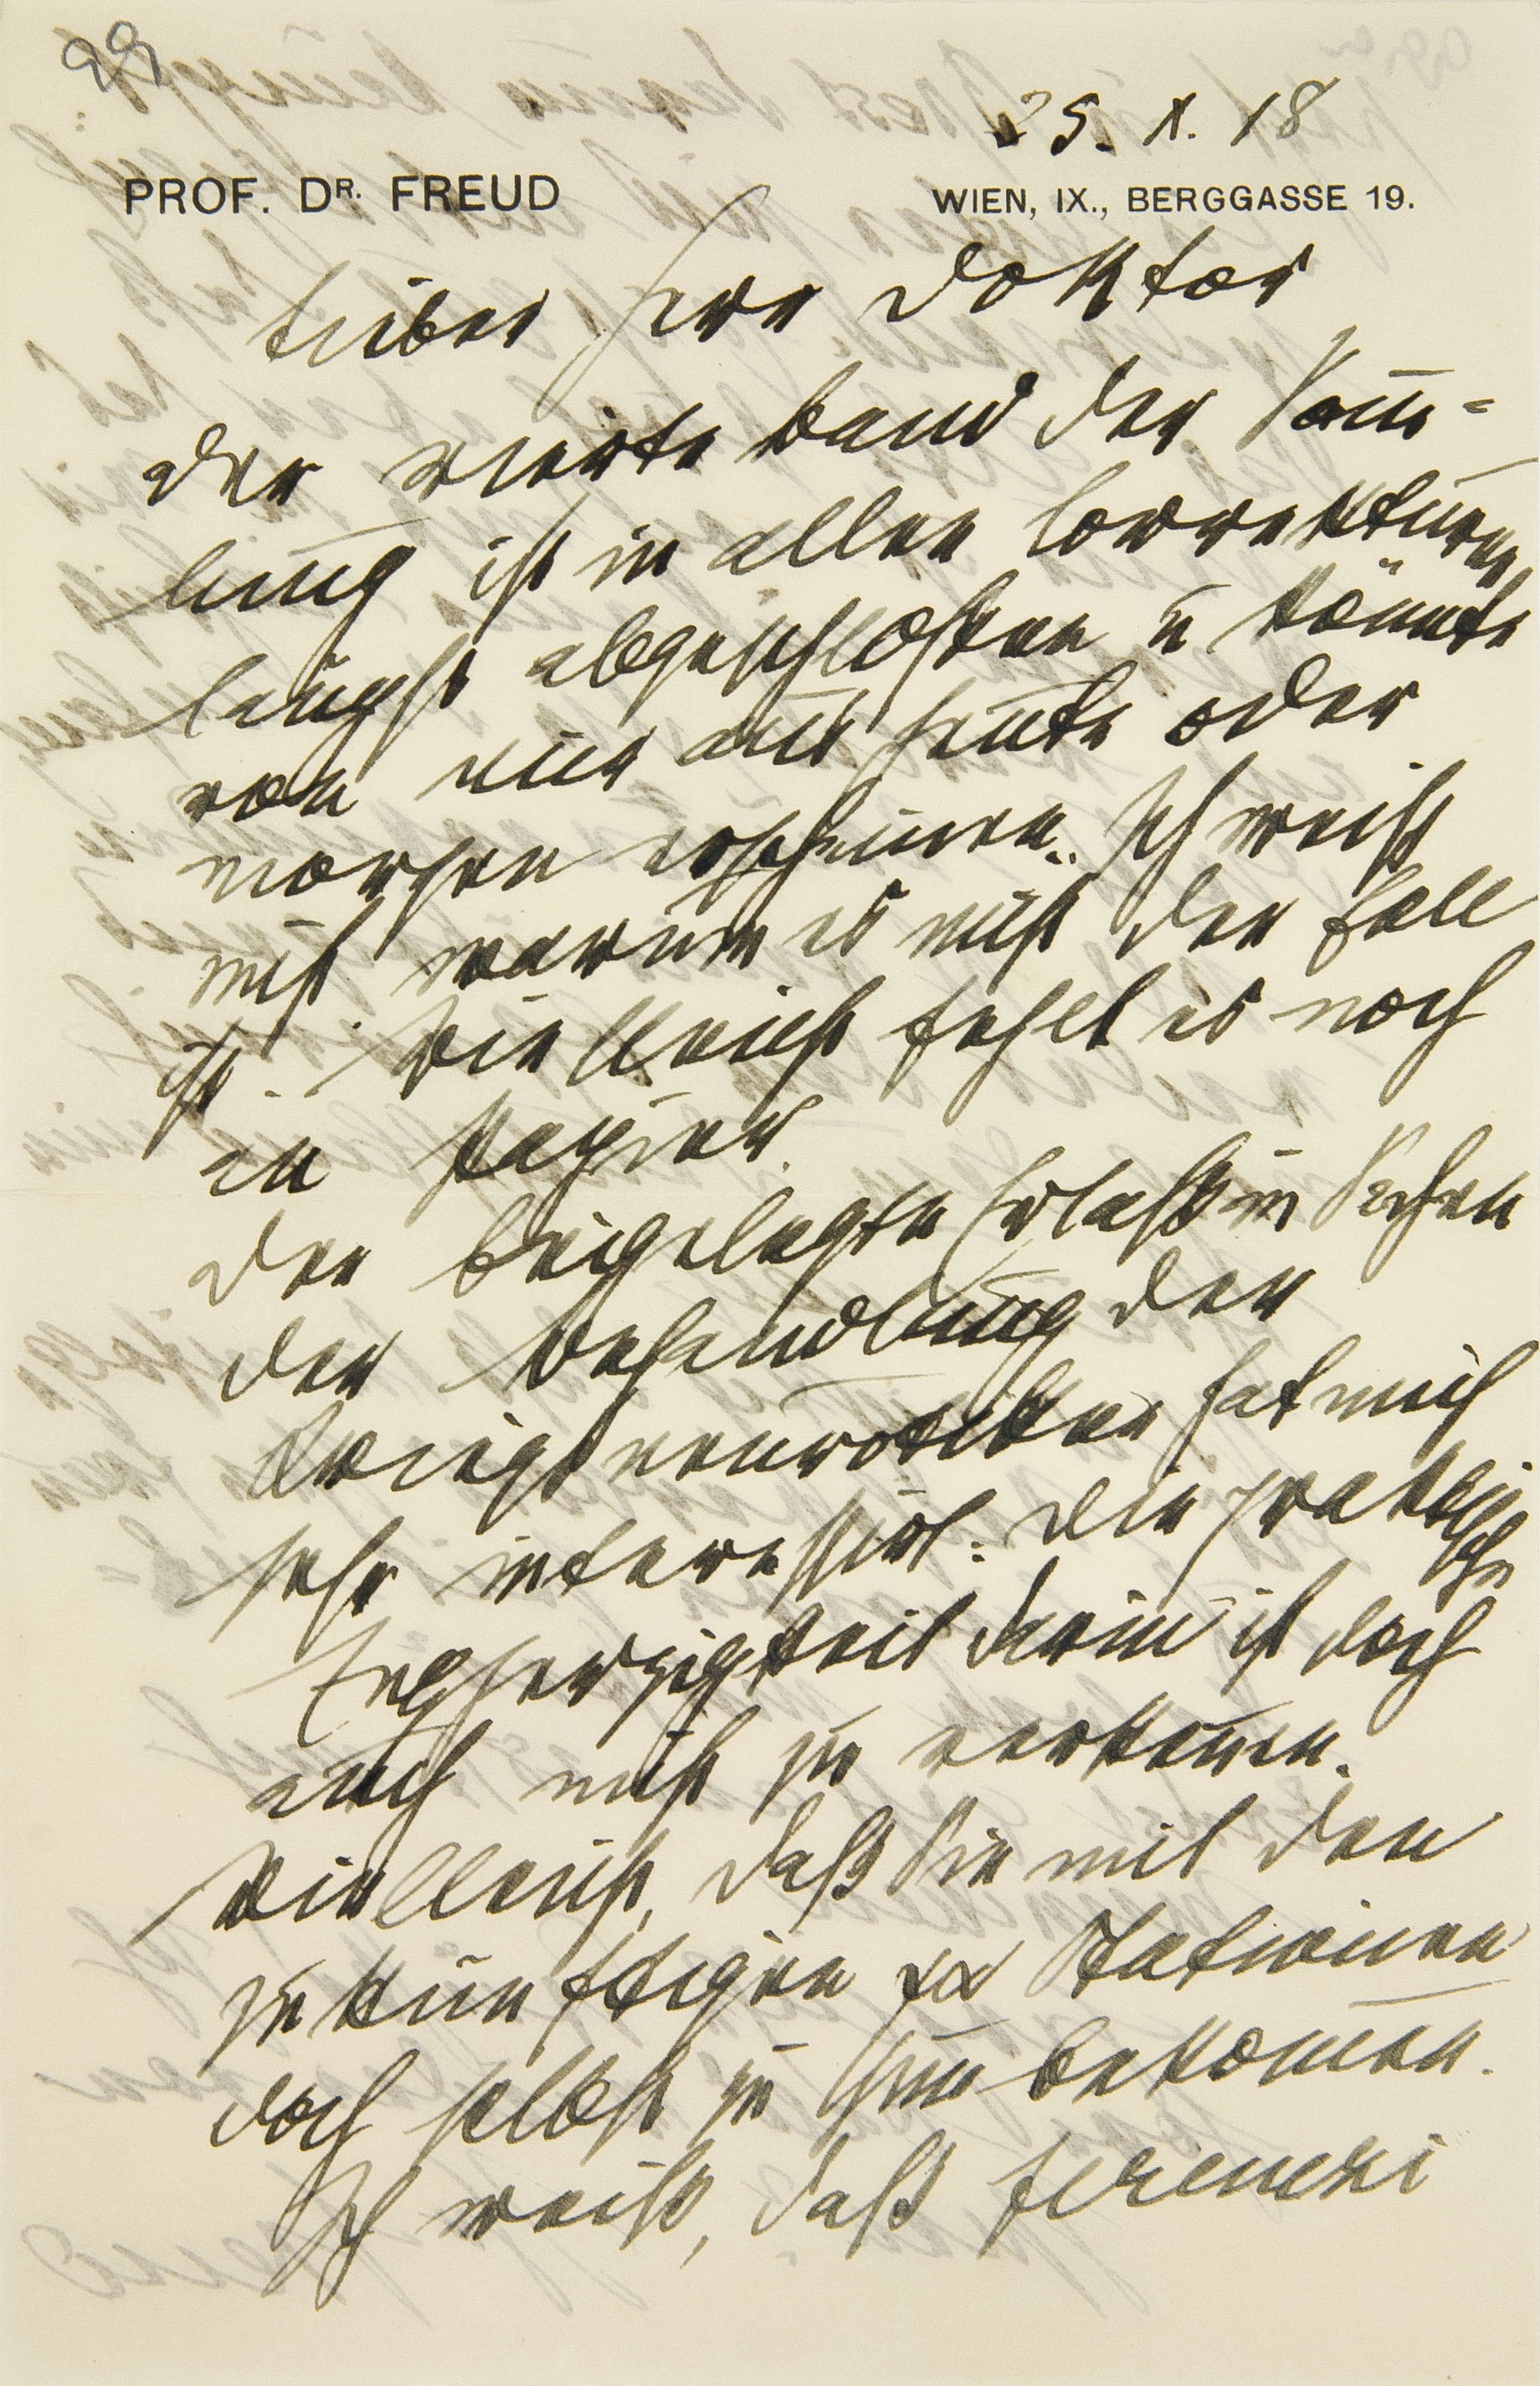 99
25. X. 18
PROF. DR. FREUD
WIEN, IX., BERGGASSE 19.
Lieber Herr Doktor
Der vierte Band der Sam̅-
lung ist in allen Correkturen
längst abgeschlossen u könnte
von mir aus heute oder
morgen erscheinen. Ich weiß
nicht warum es nicht der Fall
ist. Vielleicht fehlt es noch
an Papier.
Der beigelegte Erlaß in Sachen
der Behandlung der
Kriegsneurotiker hat mich
sehr interessirt. Die praktische
Engherzigkeit darin ist doch
auch nicht zu verkennen.
Vielleicht, daß Sie mit den
zukünftigen ψα Stationen
doch selbst zu thun bekom̅en.
Ich weiß, daß Ferenczi